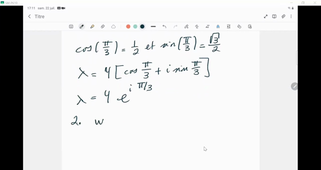 Titre
cos(π/3) = 1/2 et sin(π/3) = √3/2
λ = 4 [cos π/3 + i sin π/3]
λ = 4 e^{i π/3}
2. w